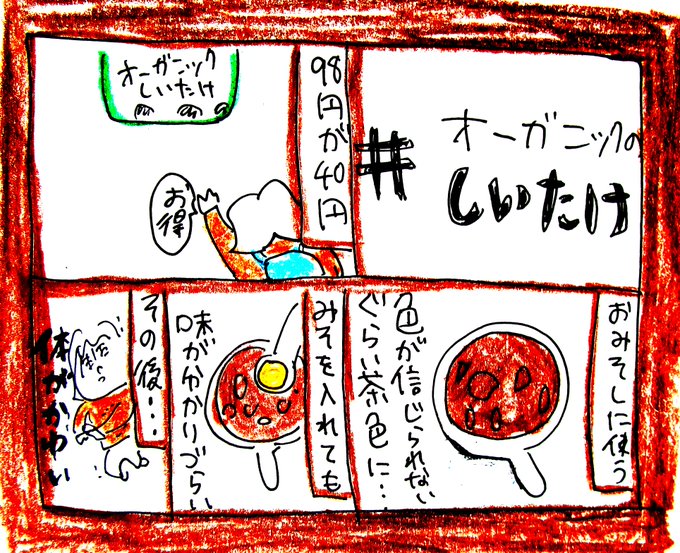 #
オーガニックの
しいたけ
98円が40円
オーガニック
しいたけ
お得
おみそしに使う
色が信じられない
ぐらい茶色に…
みそを入れても
味がわかりづらい
その後…
体がかゆい